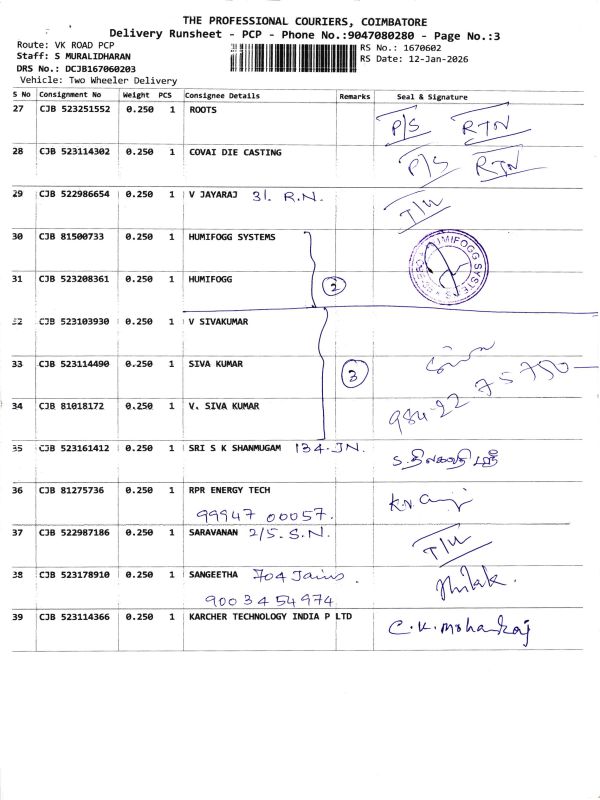 THE PROFESSIONAL COURIERS, COIMBATORE
Delivery Runsheet - PCP - Phone No.:9047080280 - Page No.:3
Route: VK ROAD PCP
Staff: S MURALIDHARAN
DRS No.: DCJB167060203
Vehicle: Two Wheeler Delivery
RS No.: 1670602
RS Date: 12-Jan-2026
S No Consignment No Weight PCS Consignee Details Remarks Seal & Signature
27 CJB 523251552 0.250 1 ROOTS P/S RTN
28 CJB 523114302 0.250 1 COVAI DIE CASTING P/S RTN
29 CJB 522986654 0.250 1 V JAYARAJ 31. R.N. T/W
30 CJB 81500733 0.250 1 HUMIFOGG SYSTEMS
31 CJB 523208361 0.250 1 HUMIFOGG 2
HUMIFOGG SYSTEMS
32 CJB 523103930 0.250 1 V SIVAKUMAR
33 CJB 523114490 0.250 1 SIVA KUMAR 3
34 CJB 81018172 0.250 1 V. SIVA KUMAR 984-22 75750
35 CJB 523161412 0.250 1 SRI S K SHANMUGAM 134-JN.
36 CJB 81275736 0.250 1 RPR ENERGY TECH K.N.
99947 00057.
37 CJB 522987186 0.250 1 SARAVANAN 2/5. S.N. T/W
38 CJB 523178910 0.250 1 SANGEETHA 704 Jains. Thilak.
9003454974
39 CJB 523114366 0.250 1 KARCHER TECHNOLOGY INDIA P LTD C.K. Mohanraj